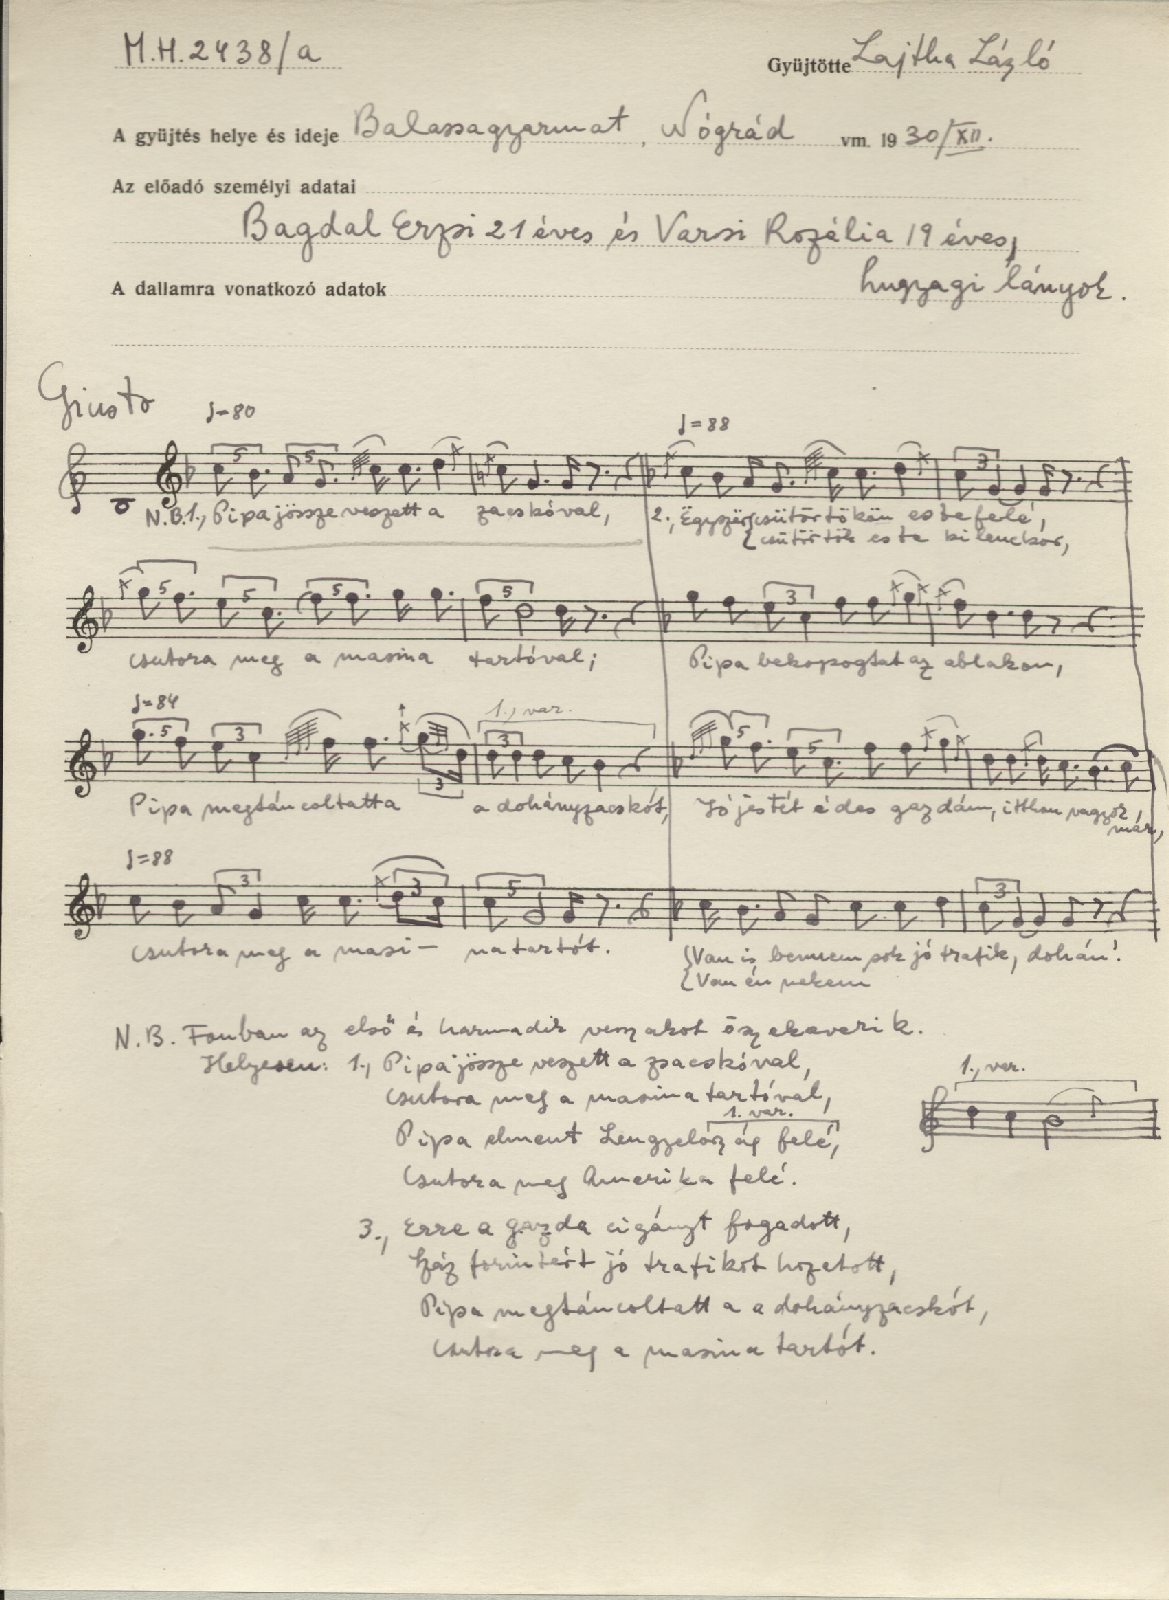 M.H. 2438/a
Gyüjtötte Lajtha László
A gyüjtés helye és ideje Balassagyarmat, Nógrád vm. 1930/XII.
Az előadó személyi adatai
Bagdal Erzsi 21 éves és Varsi Rozélia 19 éves,
A dallamra vonatkozó adatok hugyagi lányok.
Giusto
♩=80 ♩=88
5 5 3
N.B. 1., Pipa jössze veszett a zacskóval, 2., Égyszër csütörtökön este felé,
csütörtök este kilenckor,
5 5 5 5 3
csutora meg a masina tartóval; Pipa bekopogtat az ablakon,
♩=84 1., var.
5 3 3 3 5 5
Pipa megtáncoltatta a dohányzacskót, Jó jestét édes gazdám, itthon vagyok,
már,
♩=88
3 3 5 3
csutora meg a masi– na tartót. Van is bennem sok jó trafik, dohán!
Van én nekem
N.B. Fonban az első és harmadik verszakot öszekaverik.
Helyesen: 1., Pipa jössze veszett a zsacskóval,
1., var.
Csutora meg a masina tartóval,
1. var.
Pipa elment Lengyelország felé,
Csutora meg Amerika felé.
3., Erre a gazda cigányt fogadott,
Száz forintért jó trafikot hozatott,
Pipa megtáncoltatt a a dohányzacskót,
Csutora meg a masina tartót.